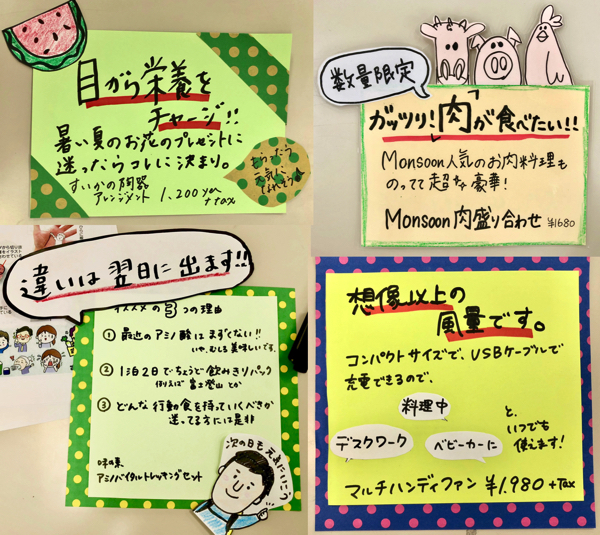 目から栄養を
チャージ!!
暑い夏のお花のプレゼントに
迷ったらコレに決まり。
すいかの陶器
アレンジメント 1,200yen
+tax
もらったら
元気に
数量限定
ガッツリ!「肉」が食べたい!!
Monsoon人気のお肉料理も
のってて超豪華!
Monsoon肉盛り合わせ ¥1680
違いは翌日に出ます!!
オススメの3つの理由
① 最近のアミノ酸はまずくない!!
いや、むしろ美味しいです。
② 1泊2日でちょうど飲みきりパック
例えば 富士登山 とか
③ どんな行動食を持っていくべきか
迷ってる方には是非
味の素
アミノバイタルトレッキングセット
次の日も元気にいこう
想像以上の
風量です。
コンパクトサイズで、USBケーブルで
充電できるので、
料理中
デスクワーク
ベビーカーに
と、
いつでも
使えます!
マルチハンディファン ¥1,980 +Tax